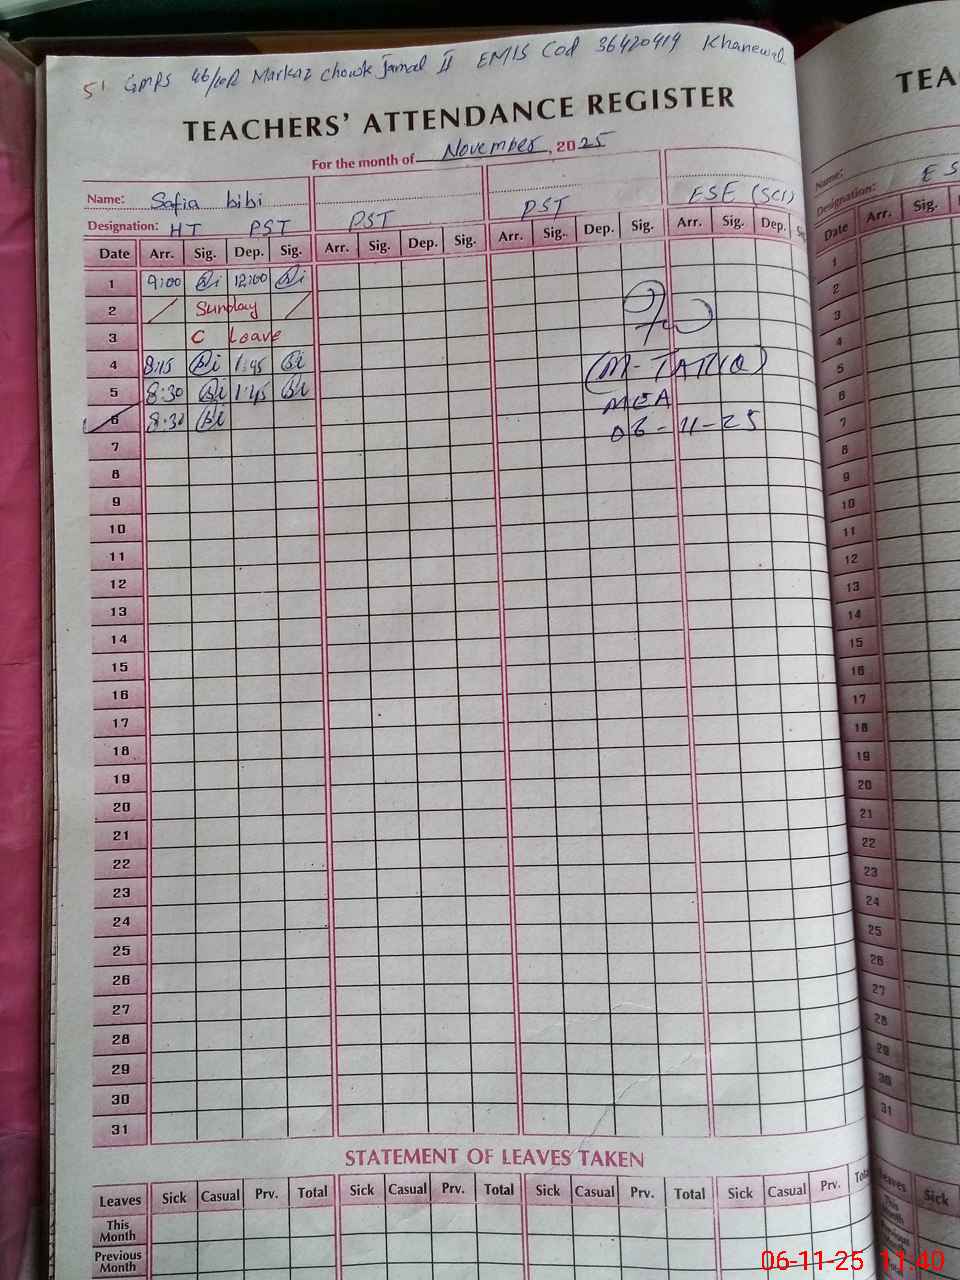 51 GMPS 46/10R Markaz chowk Jamal II EMIS Cod 36420419 Khanewal
TEACHERS' ATTENDANCE REGISTER
For the month of November, 2025
Name: Safia bibi
Designation: HT PST PST PST ESE (SCI)
Date Arr. Sig. Dep. Sig. Arr. Sig. Dep. Sig. Arr. Sig. Dep. Sig. Arr. Sig. Dep. Sig.
1 9:00 Bi 12:00 Bi
2 Sunday
3 C Leave
4 8:15 Bi 1:45 Bi (M-TARIQ)
5 8:30 Bi 1:45 Bi MEA
6 8:30 Bi 06-11-25
7
8
9
10
11
12
13
14
15
16
17
18
19
20
21
22
23
24
25
26
27
28
29
30
31
STATEMENT OF LEAVES TAKEN
Leaves Sick Casual Prv. Total Sick Casual Prv. Total Sick Casual Prv. Total Sick Casual Prv. Total
This Month
Previous Month
TEA
Name:
Designation: ES
Date Arr. Sig.
1
2
3
4
5
6
7
8
9
10
11
12
13
14
15
16
17
18
19
20
21
22
23
24
25
26
27
28
29
30
31
Leaves Sick
06-11-25 11:40